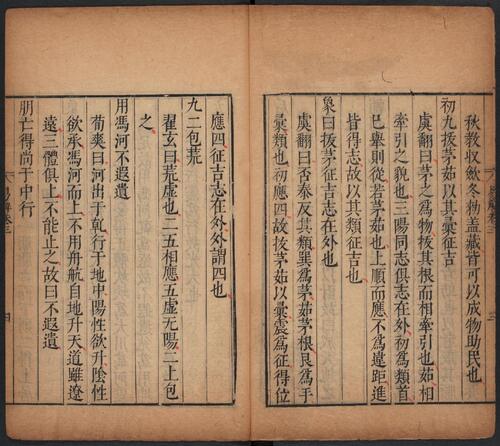 秋教收斂冬勑盖藏皆可以成物助民也
初九拔茅茹以其彙征吉
虞翻曰茅之爲物拔其根而相牽引也茹相
牽引之皃也三陽同志俱志在外初爲類首
已舉則從若茅茹也上順而應不爲違距進
皆得志故以其類征吉也
象曰拔茅征吉志在外也
虞翻曰否泰反其類巽爲茅茹茅根艮爲手
彙類也初應四故拔茅茹以彙震爲征得位
應四征吉志在外外謂四也
九二包荒
翟玄曰荒虛也二五相應五虛无陽二上包
之
用馮河不遐遺
荀爽曰河出于乹行于地中陽性欲升陰性
欲承馮河而上不用舟航自地升天道雖遼
遠三體俱上不能止之故曰不遐遺
朋亡得尚于中行
易解卷三
四